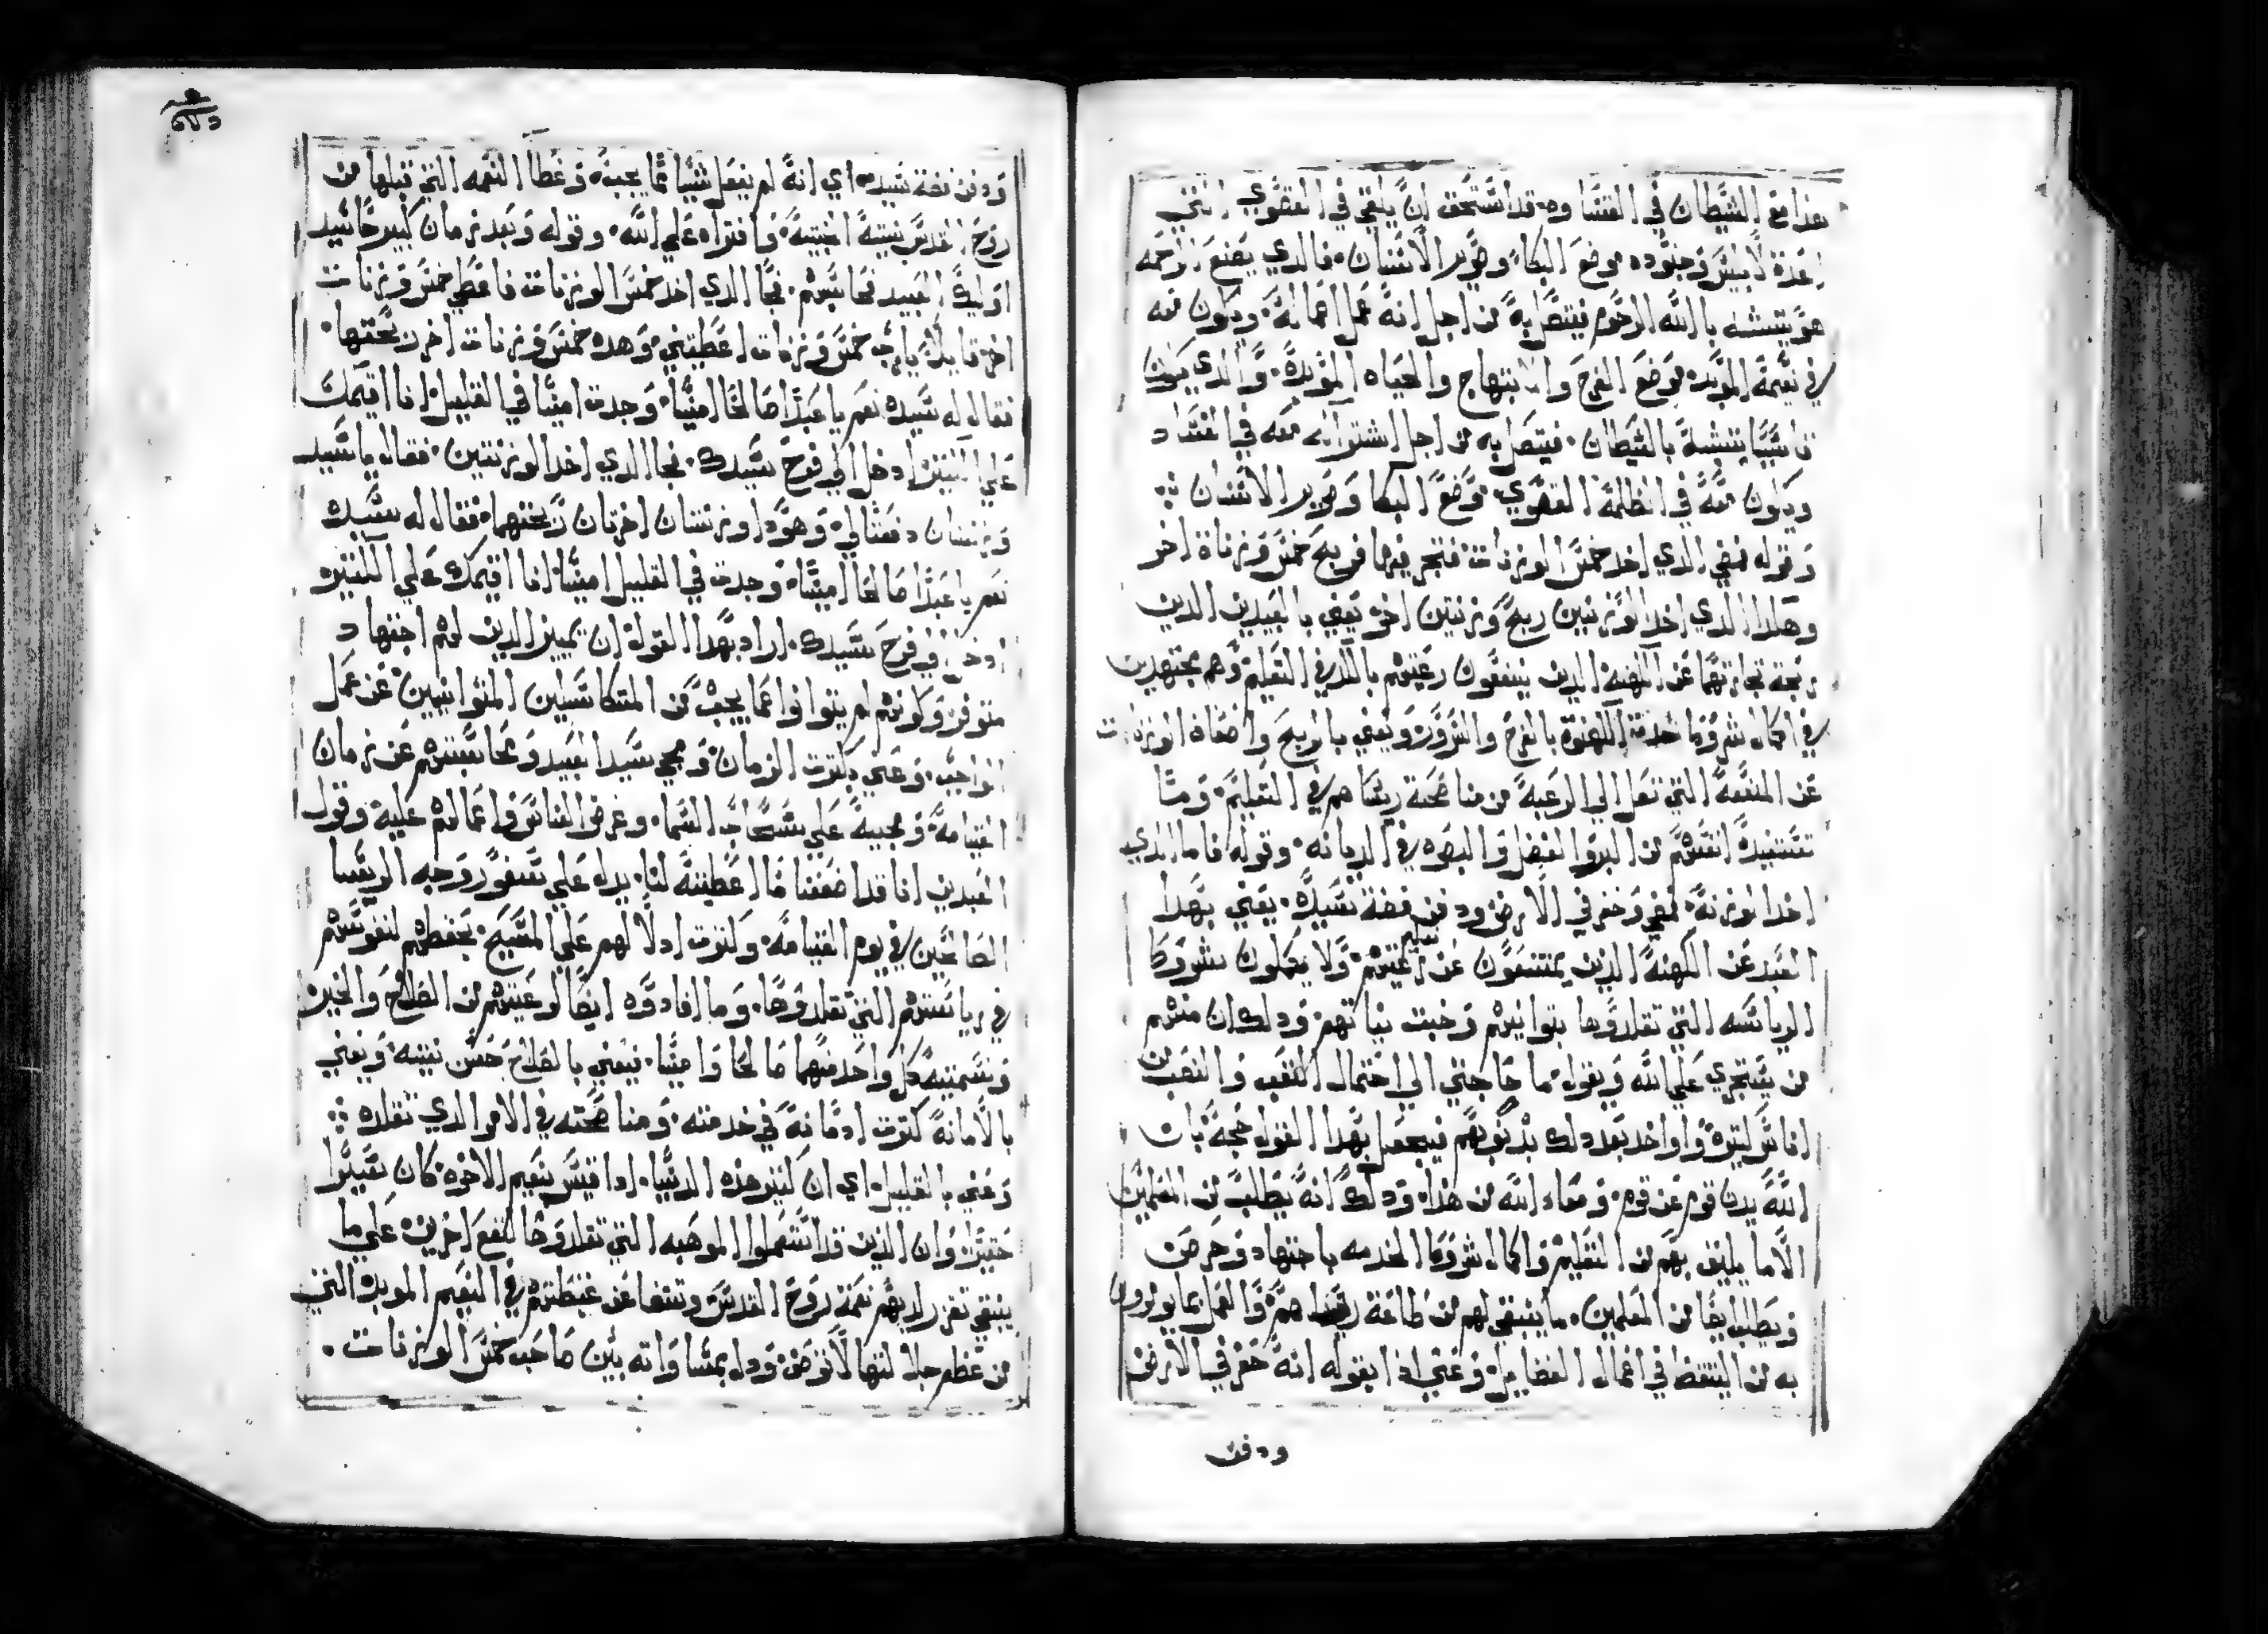 هذا مع الشيطان في القساوه قد استحق ان يلقي في القصوي التي
اعدة لابليس وجنوده موضع البكا وصرير الاسنان فالدي يصنع الرحمه
هو يتشبه بالله الرحوم فيتصل به من اجل انه عمل اعماله ويكون معه
في نعيمة المؤبد موضع الفرح والابتهاج والحياه المؤبدة والدي يكون
قاسيا يتشبه بالشيطان فيتصل به من اجل اشتراكه معه في الفساد
ويكون معه في الظلمة القصوي موضع البكا وصرير الاسنان
وقوله فمضي الدي اخد خمس الوزنات فتجر فيها فربح خمس وزناة اخر
وهكدا الدي اخد الوزنتين ربح وزنتين اخر يعني بالعبدين الدين
ربحة تجارتهما عن الكهنه الدين ينفعون رعيتهم بالتعليم وهم مجتهدين
في اكمال شروط خدمة الكهنوة بالفرح والسرور ويعني بالربح واضعاف الوزنات
عن المنفعة التي تصل الي الرعية من مناصحة ريساهم في التعليم وما
تستفيدة انفسهم من البر والفضل والبصره في الديانه وقوله فاما الدي
اخد الوزنة فمضي وحفر في الارض ودفن فضة سيده يعني بهدا
العبد عن الكهنة الدين يمتنعون عن تعليم رعيتهم ولا يكملون شروط
الرياسه التي تقلدوها بتوانيهم وخبت نياتهم ودلك ان منهم
من يستجري علي الله ويقول ما حاجتي الي احتمال التعب والنصب
انا شوليتهم واواخد بعد دلك بدنوبهم فيجعل بهدا القول حجة بان
الله يدين قوم عن قوم ومعاد الله من هدا ودلك انه يطلب من المعلمين
الاما يليق بهم من التعليم واكمال شروط الخدمه باجتهاد وحرص
ويطلب ايضا من المعلمين ما ينبغي لهم من طاعة ريساهم والعمل بما يومرون
به من التيقظ في اعمال الفضايل وعني ادا بقوله انه حفر في الارض
ودفن
ودفن فضة سيده اي انه لم يفعل شيا مما يجب وغطا النعمه التي قبلها من
روح القدس بنيته الخبيته وافتراه علي الله وقوله وبعد زمان كبير جا سيد
اوليك العبيد فحاسبهم فجا الدي اخد خمس الوزنات فاعطي خمس وزنات
اخر قايلا يارب خمس وزنات اعطيتني وهده خمس وزنات اخر ربحتها
فقال له سيده نعم يا عبدا صالحا امينا وجدت امينا في القليل انا اقيمك
علي الكتير ادخل الي فرح سيدك فجا الدي اخد الوزنتين فقال يا سيد
وزنتان دفعتا لي وهودا وزنتان اخرتان ربحتهما فقال له سيده
نعم يا عبدا صالحا امينا وجدت في القليل امينا انا اقيمك علي الكتيره
ادخل الي فرح سيدك اراد بهدا القول ان يميز الدين لهم اجتهاد
متوفر وكونهم لم يتوانوا عما يجب من المتكاسلين المتوانيين عن عمل
الواجب وعني بكترت الزمان ومجي سيد العبيد ومحاسبتهم عن زمان
القيامة ومجيه علي سحاب السما وعرض الناس واعمالهم عليه وقول
العبدين انا قد اضعفنا ما اعطيته لنا يدل علي سفور وجه الريسا
الصالحين في يوم القيامه ولترت ادلالهم علي المسيح بحفظهم لنفوسهم
في رياستهم التي تقلدوها وما افادوه ايضا لرعيتهم من الصلاح والخير
وتسميته كل واحد منهما صالحا وامينا فيعني بالصلاح حسن نيته ويعني
بالامانة كترت ادمانه في خدمته ومناصحته في الامر الدي تقلده
وعني بالقليل اي ان كتير هده الدنيا ادا قيس بنعيم الاخره كان يسيرا
حقيرا وان الدين قد استعملوا الموهبه التي تقلدوها لنفع اخرين علي ما
ينبغي تغزر لديهم نعمة روح القدس وتنشا عن غبطتهم في النعيم الموبد التي
من عظم جلالتها لا توصف ودل بمساواته بين صاحب خمس الوزنات